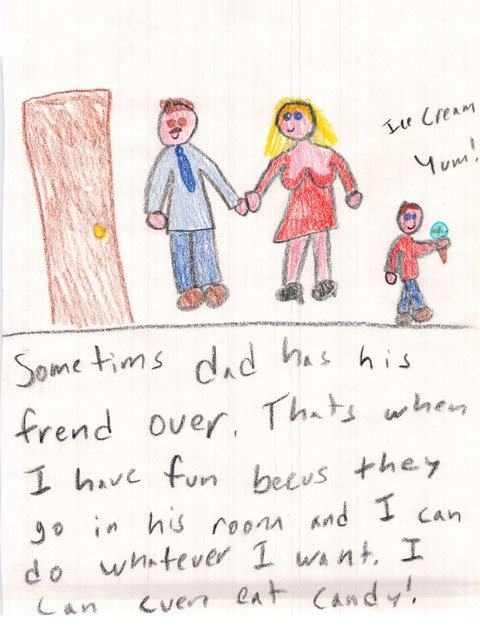 Ice Cream
Yum!
Sometims dad has his
frend over. Thats when
I have fun becus they
go in his room and I can
do whatever I want. I
can even eat candy!